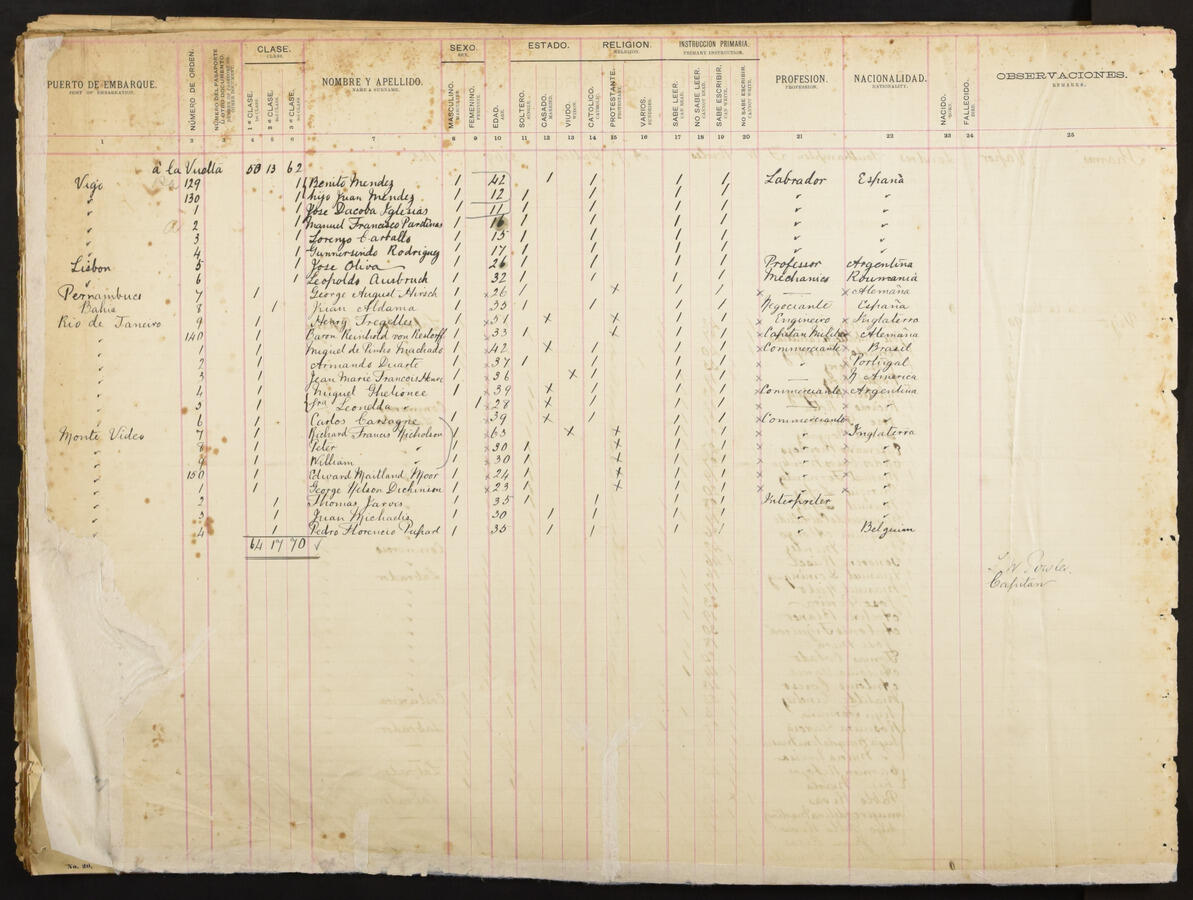 CLASE. SEXO. ESTADO. RELIGION. INSTRUCCIÓN PRIMARIA.
CLASS. SEX. RELIGION. PRIMARY INSTRUCTION.
PUERTO DE EMBARQUE. NÚMERO DE ORDEN. 1ª CLASE. 2ª CLASE. 3ª CLASE. NOMBRE Y APELLIDO. MASCULINO. FEMENINO. EDAD. SOLTERO. CASADO. VIUDO. CATOLICO. PROTESTANTE. VARIOS. SABE LEER. NO SABE LEER. SABE ESCRIBIR. NO SABE ESCRIBIR. PROFESION. NACIONALIDAD. NACIDO. FALLECIDO. OBSERVACIONES.
PORT OF EMBARKATION. NAME & SURNAME. PROFESSION. NATIONALITY. REMARKS.
1 2 3 4 5 6 7 8 9 10 11 12 13 14 15 16 17 18 19 20 21 22 23 24 25
á la Vuelta 50 13 62
Vigo 129 1 Benito Mendez 1 42 1 1 1 1 Labrador España
" 130 1 hijo Juan Mendez 1 12 1 1 1 1 " "
" 1 1 Jose Dacoba Iglesias 1 11 1 1 1 1 " "
" 2 1 Manuel Francisco Pardinas 1 16 1 1 1 1 " "
" 3 1 Lorenzo Carballo 1 15 1 1 1 1 " "
" 4 1 Gumersindo Rodriguez 1 17 1 1 1 1 " "
Lisbon 5 1 Jose Oliva 1 26 1 1 1 1 Professor Argentina
" 6 1 Leopoldo Ausbruch 1 32 1 1 1 1 Mechanics Roumania
Pernambuco 7 1 George August Hirsch 1 x 26 1 x 1 1 x — x Alemaña
Bahia 8 1 Juan Aldama 1 35 1 1 1 1 Negociante España
Rio de Janeiro 9 1 Henry Tregelles 1 x 51 x x 1 1 x Engineiro x Inglaterra
" 140 1 Baron Reinhold von Restorff 1 x 33 1 x 1 1 x Capitán Militar x Alemaña
" 1 1 Miguel de Pinho Machado 1 x 42 x 1 1 1 x Commerciante x Brasil
" 2 1 Armando Duarte 1 x 37 1 1 1 1 x " x Portugal
" 3 1 Jean Marie Francois Henri 1 x 36 x 1 1 1 x — x N America
" 4 1 Miguel Ghelionce 1 x 39 x 1 1 1 x Commerciante x Argentina
" 5 1 Sra Leonelda " 1 x 28 x 1 1 1 x — x "
" 6 1 Carlos Carvagne 1 x 39 x 1 1 1 x Commerciante x "
Monte Video 7 1 Richard Francis Nicholson 1 x 63 x x 1 1 x " x Inglaterra
" 8 1 Peter " 1 x 30 1 x 1 1 x " x "
" 9 1 William " 1 x 30 1 x 1 1 x " x "
" 150 1 Edward Maitland Moor 1 x 24 1 x 1 1 x " x "
" 1 1 George Nelson Dickinson 1 x 23 1 x 1 1 x " x "
" 2 1 Thomas Jarvis 1 35 1 1 1 1 Interpreter "
" 3 1 Juan Michaelis 1 30 1 1 1 1 " "
" 4 1 Pedro Florencio 1 35 1 1 1 1 " Belguim
64 17 70
Capitan
No. 20.